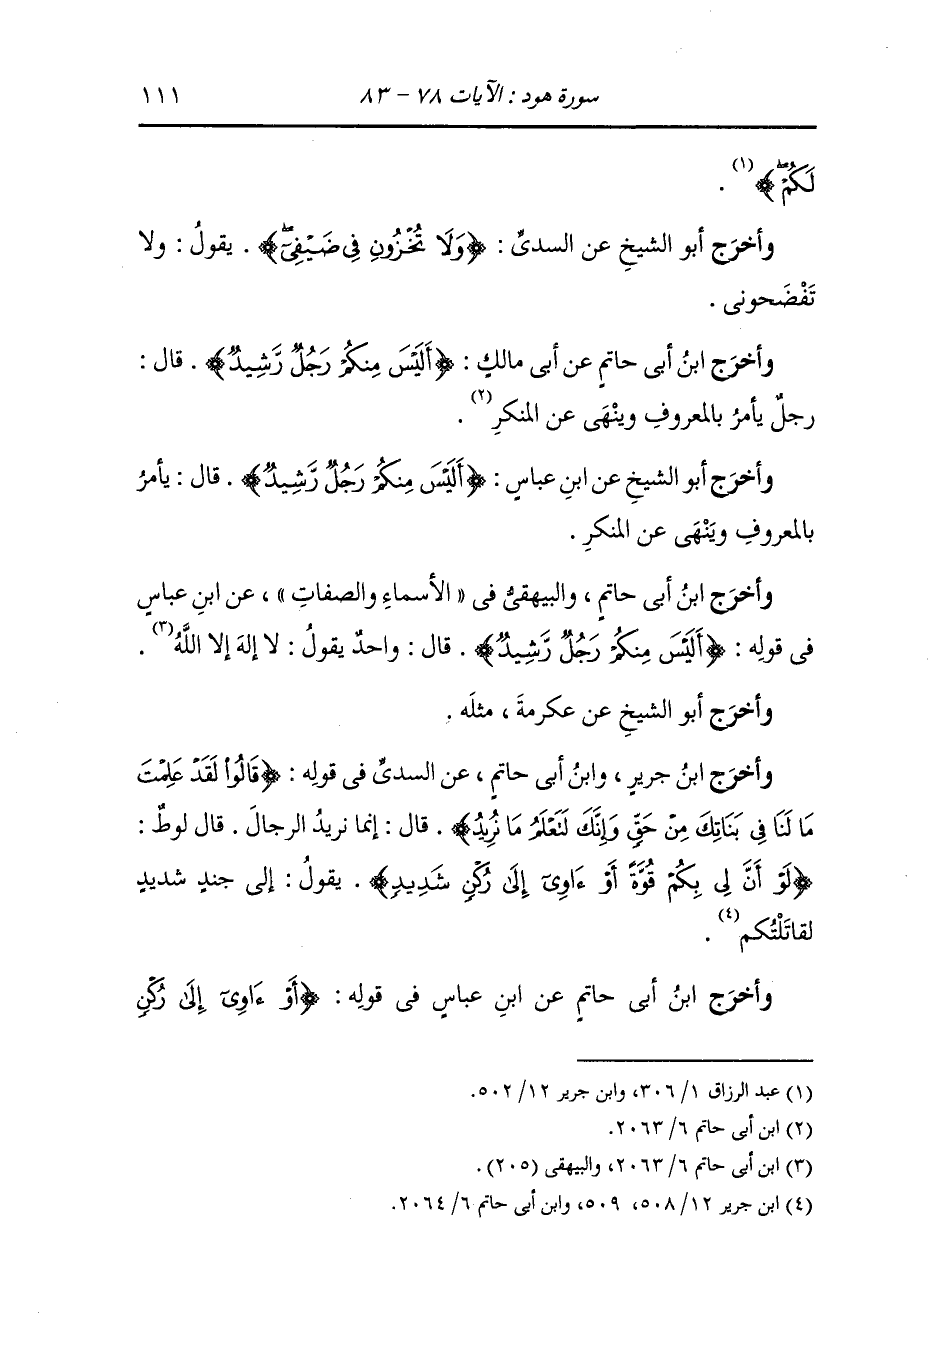 سورة هود : الآيات ٧٨ - ٨٣ ١١١
لَكُمْۖ﴾(١) .
وأخرَج أبو الشيخِ عن السدىِّ : ﴿وَلَا تُخْزُونِ فِى ضَيْفِىٓۖ﴾ . يقولُ : ولا
تَفْضَحونى .
وأخرَج ابنُ أبى حاتمٍ عن أبى مالكٍ : ﴿أَلَيْسَ مِنكُمْ رَجُلٌ رَّشِيدٌ﴾ . قال :
رجلٌ يأمرُ بالمعروفِ وينْهَى عن المنكرِ(٢) .
وأخرَج أبو الشيخِ عن ابنِ عباسٍ : ﴿أَلَيْسَ مِنكُمْ رَجُلٌ رَّشِيدٌ﴾ . قال : يأمرُ
بالمعروفِ ويَنْهَى عن المنكرِ .
وأخرَج ابنُ أبى حاتمٍ ، والبيهقىُّ فى « الأسماءِ والصفاتِ » ، عن ابنِ عباسٍ
فى قولِه : ﴿أَلَيْسَ مِنكُمْ رَجُلٌ رَّشِيدٌ﴾ . قال : واحدٌ يقولُ : لا إلهَ إلا اللَّهُ(٣) .
وأخرَج أبو الشيخِ عن عكرمةَ ، مثلَه .
وأخرَج ابنُ جريرٍ ، وابنُ أبى حاتمٍ ، عن السدىِّ فى قولِه : ﴿قَالُواْ لَقَدْ عَلِمْتَ
مَا لَنَا فِى بَنَاتِكَ مِنْ حَقٍّ وَإِنَّكَ لَتَعْلَمُ مَا نُرِيدُ﴾ . قال : إنما نريدُ الرجالَ . قال لوطٌ :
﴿لَوْ أَنَّ لِى بِكُمْ قُوَّةً أَوْ ءَاوِىٓ إِلَىٰ رُكْنٍ شَدِيدٍ﴾ . يقولُ : إلى جندٍ شديدٍ
لقاتَلْتُكم(٤) .
وأخرَج ابنُ أبى حاتمٍ عن ابنِ عباسٍ فى قولِه : ﴿أَوْ ءَاوِىٓ إِلَىٰ رُكْنٍ
(١) عبد الرزاق ١/ ٣٠٦، وابن جرير ١٢/ ٥٠٢.
(٢) ابن أبى حاتم ٦/ ٢٠٦٣.
(٣) ابن أبى حاتم ٦/ ٢٠٦٣، والبيهقى (٢٠٥).
(٤) ابن جرير ١٢/ ٥٠٨، ٥٠٩، وابن أبى حاتم ٦/ ٢٠٦٤.